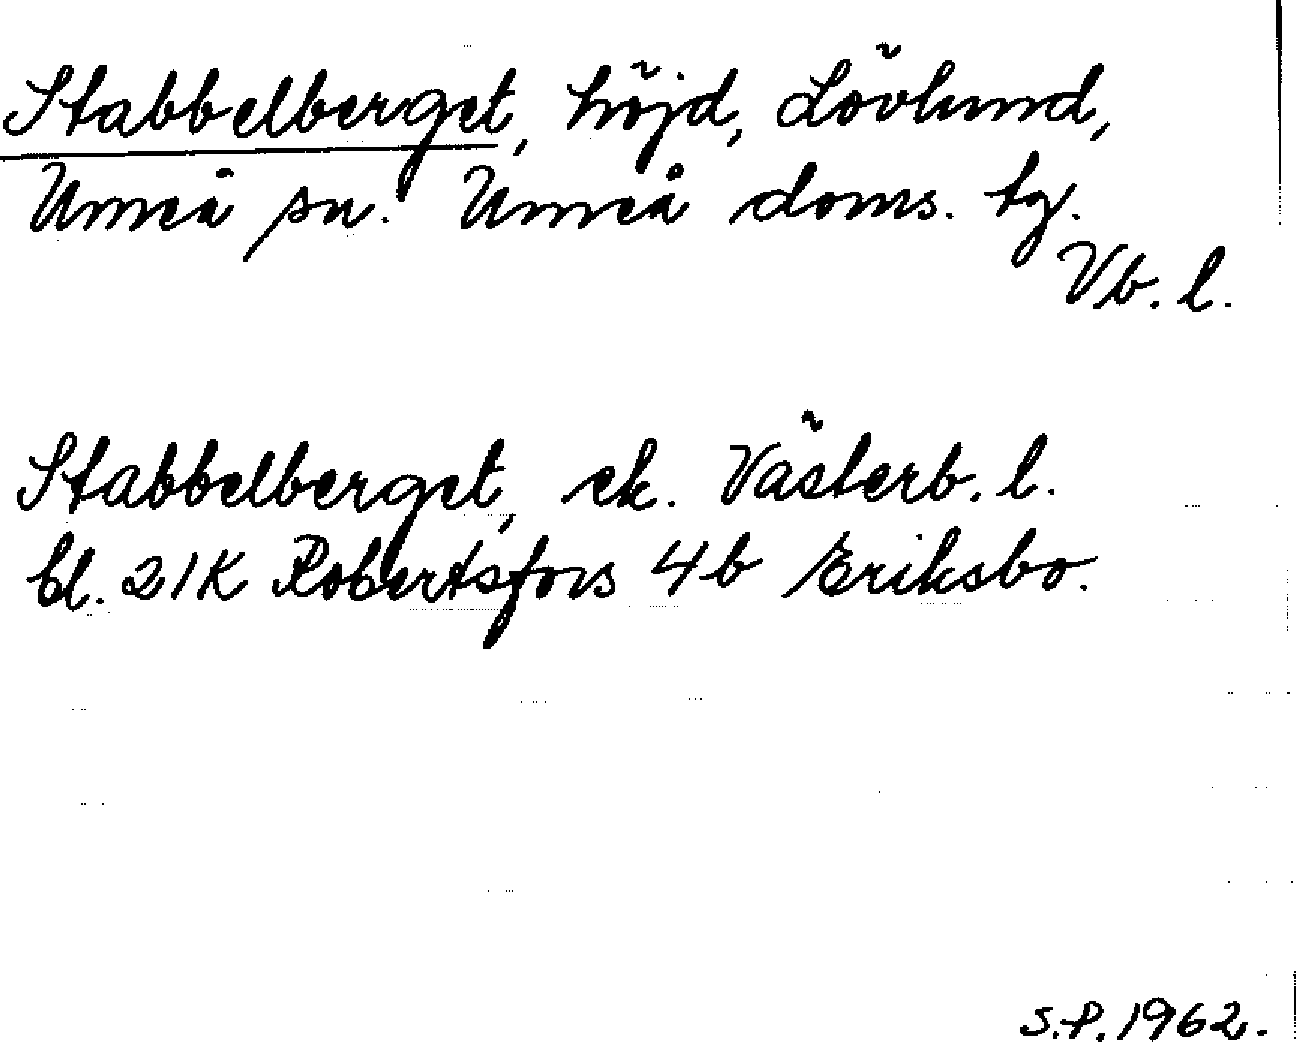 Stabbelberget, höjd, Lövlund,
Umeå sn. Umeå doms. tg.
Vb. l.
Stabbelberget, ek. Västerb. l.
bl. 21K Robertsfors 4b Eriksbo.
S.P. 1962.